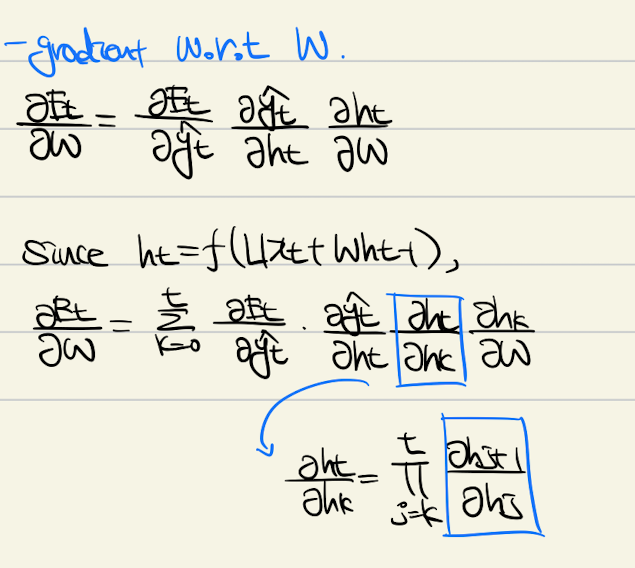 - gradient w.r.t W.
∂Et/∂W = ∂Et/∂ŷt ∂ŷt/∂ht ∂ht/∂W
since ht = f(Uxt + Wht-1),
∂Et/∂W = Σ_{k=0}^{t} ∂Et/∂ŷt · ∂ŷt/∂ht ∂ht/∂hk ∂hk/∂W
∂ht/∂hk = ∏_{j=k}^{t} ∂hj+1/∂hj